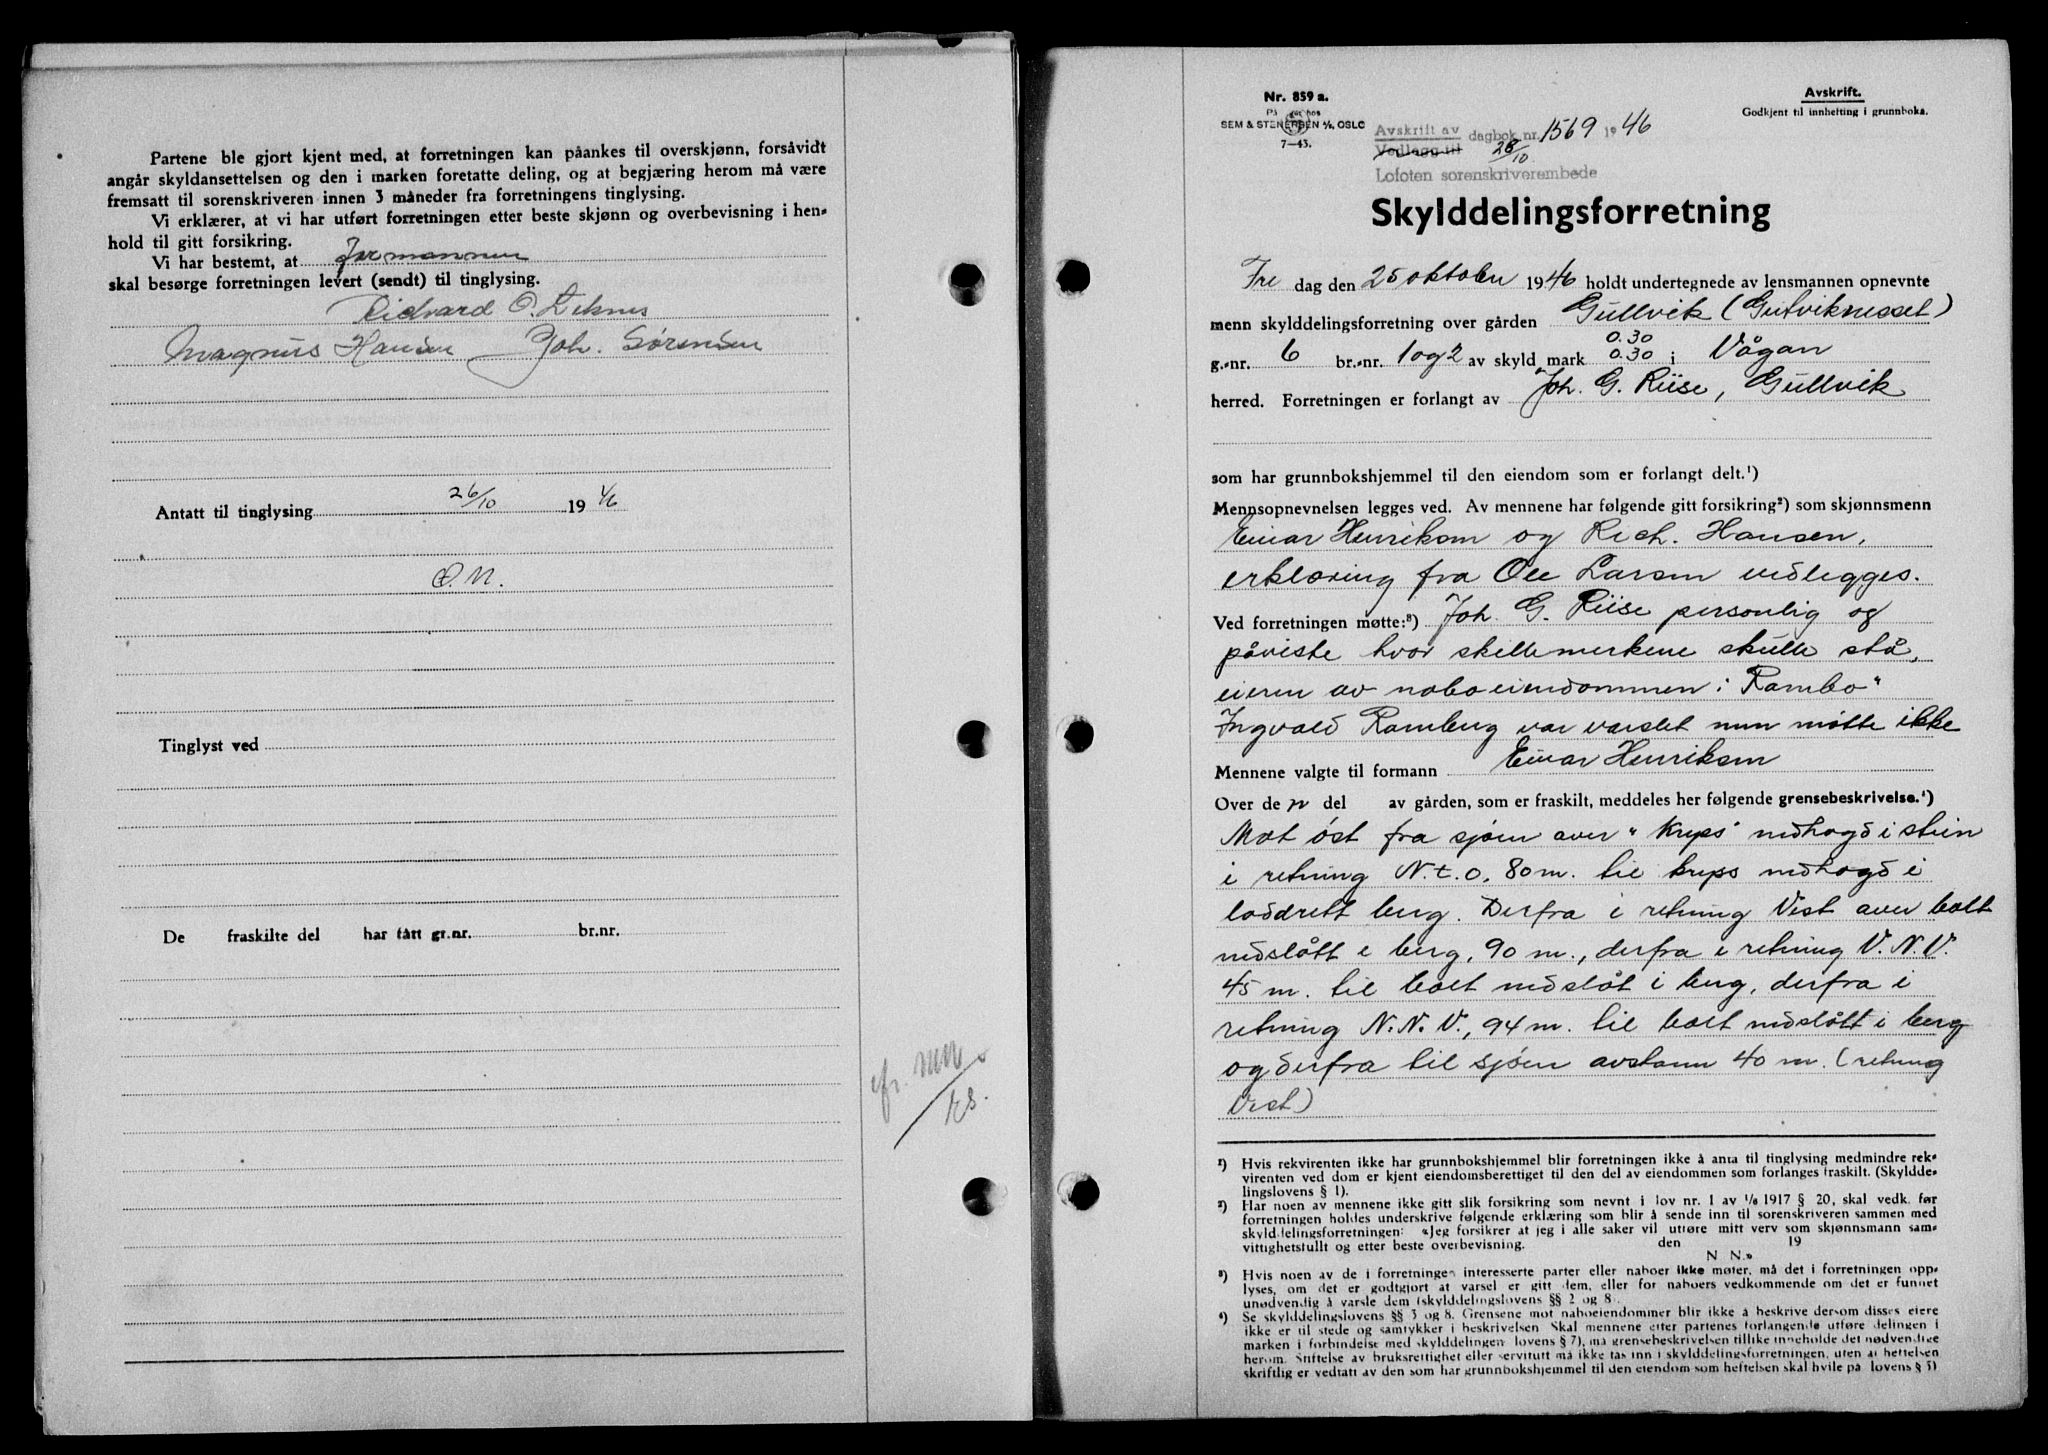 Partene ble gjort kjent med, at forretningen kan påankes til overskjønn, forsåvidt
angår skyldansettelsen og den i marken foretatte deling, og at begjæring herom må være
fremsatt til sorenskriveren innen 3 måneder fra forretningens tinglysing.
Vi erklærer, at vi har utført forretningen etter beste skjønn og overbevisning i hen-
hold til gitt forsikring.
Vi har bestemt, at formannen
skal besørge forretningen levert (sendt) til tinglysing.
Magnus Hansen Joh. Sørensen
Antatt til tinglysing 26/10 1946
O.N.
Tinglyst ved
De fraskilte del har fått gr.nr. br.nr.
Nr. 859 a.
SEM & STENERSEN A/S, OSLO
7-43.
Avskrift.
Godkjent til innhefting i grunnboka.
Avskrift av
Vedlegg til dagbok nr. 1569 1946
28/10
Lofoten sorenskriverembede
Skylddelingsforretning
Fre dag den 25 oktober 1946 holdt undertegnede av lensmannen opnevnte
menn skylddelingsforretning over gården Gullvik (Gulviknesset)
g.-nr. 6 br.-nr. 1 og 2 av skyld mark 0.30 0.30 i Vågan
herred. Forretningen er forlangt av Joh. G. Riise, Gullvik
som har grunnbokshjemmel til den eiendom som er forlangt delt.¹)
Mennsopnevnelsen legges ved. Av mennene har følgende gitt forsikring²) som skjønnsmenn
Einar Henriksen og Rich. Hansen,
erklæring fra Ole Larsen vedlegges.
Ved forretningen møtte:³) Joh. G. Riise personlig og
påviste hvor skillemerkene skulle stå,
eieren av naboeiendommen: Rambo"
Ingvald Ramberg var varslet men møtte ikke
Mennene valgte til formann Einar Henriksen
Over de n del av gården, som er fraskilt, meddeles her følgende grensebeskrivelse.⁴)
Mot øst fra sjøen over "Kryss" nedhogd i stein
i retning N.t.O. 80 m. til kryss nedhogd i
loddrett berg. Derfra i retning Vest over bolt
nedslått i berg, 90 m., derfra i retning V.N.V.
45 m. til bolt nedslåt i berg, derfra i
retning N.N.V., 94 m. til bolt nedslått i berg
og derfra til sjøen avstann 40 m. (retning
Vest)
¹) Hvis rekvirenten ikke har grunnbokshjemmel blir forretningen ikke å anta til tinglysing medmindre rek-
virenten ved dom er kjent eiendomsberettiget til den del av eiendommen som forlanges fraskilt. (Skyldde-
lingslovens § 1).
²) Har noen av mennene ikke gitt slik forsikring som nevnt i lov nr. 1 av 1/6 1917 § 20, skal vedk. før
forretningen holdes underskrive følgende erklæring som blir å sende inn til sorenskriveren sammen med
skylddelingsforretningen: «Jeg forsikrer at jeg i alle saker vil utføre mitt verv som skjønnsmann sam-
vittighetsfullt og etter beste overbevisning. den 19
N N.»
³) Hvis noen av de i forretningen interesserte parter eller naboer ikke møter, må det i forretningen opp-
lyses, om det er godtgjort at varsel er gitt dem, eller for naboers vedkommende om det er funnet
unødvendig å varsle dem (skylddelingslovens §§ 2 og 8).
⁴) Se skylddelingslovens §§ 3 og 8. Grensene mot naboeiendommer blir ikke å beskrive dersom disses eiere
ikke er til stede og samtykker i beskrivelsen. Skal mennene etter partenes forlangende utføre delingen i
marken i forbindelse med skylddelingen (lovens § 7), må grensebeskrivelsen tillike inneholde det nødvendige
herom. Stiftelse av bruksrettighet eller servitutt må ikke tas inn i skylddelingsforretningen, uten at heftelsen
skriftlig er vedtatt av den som har grunnbokshjemmel til den eiendom som heftelsen skal hvile på (lovens § 5)